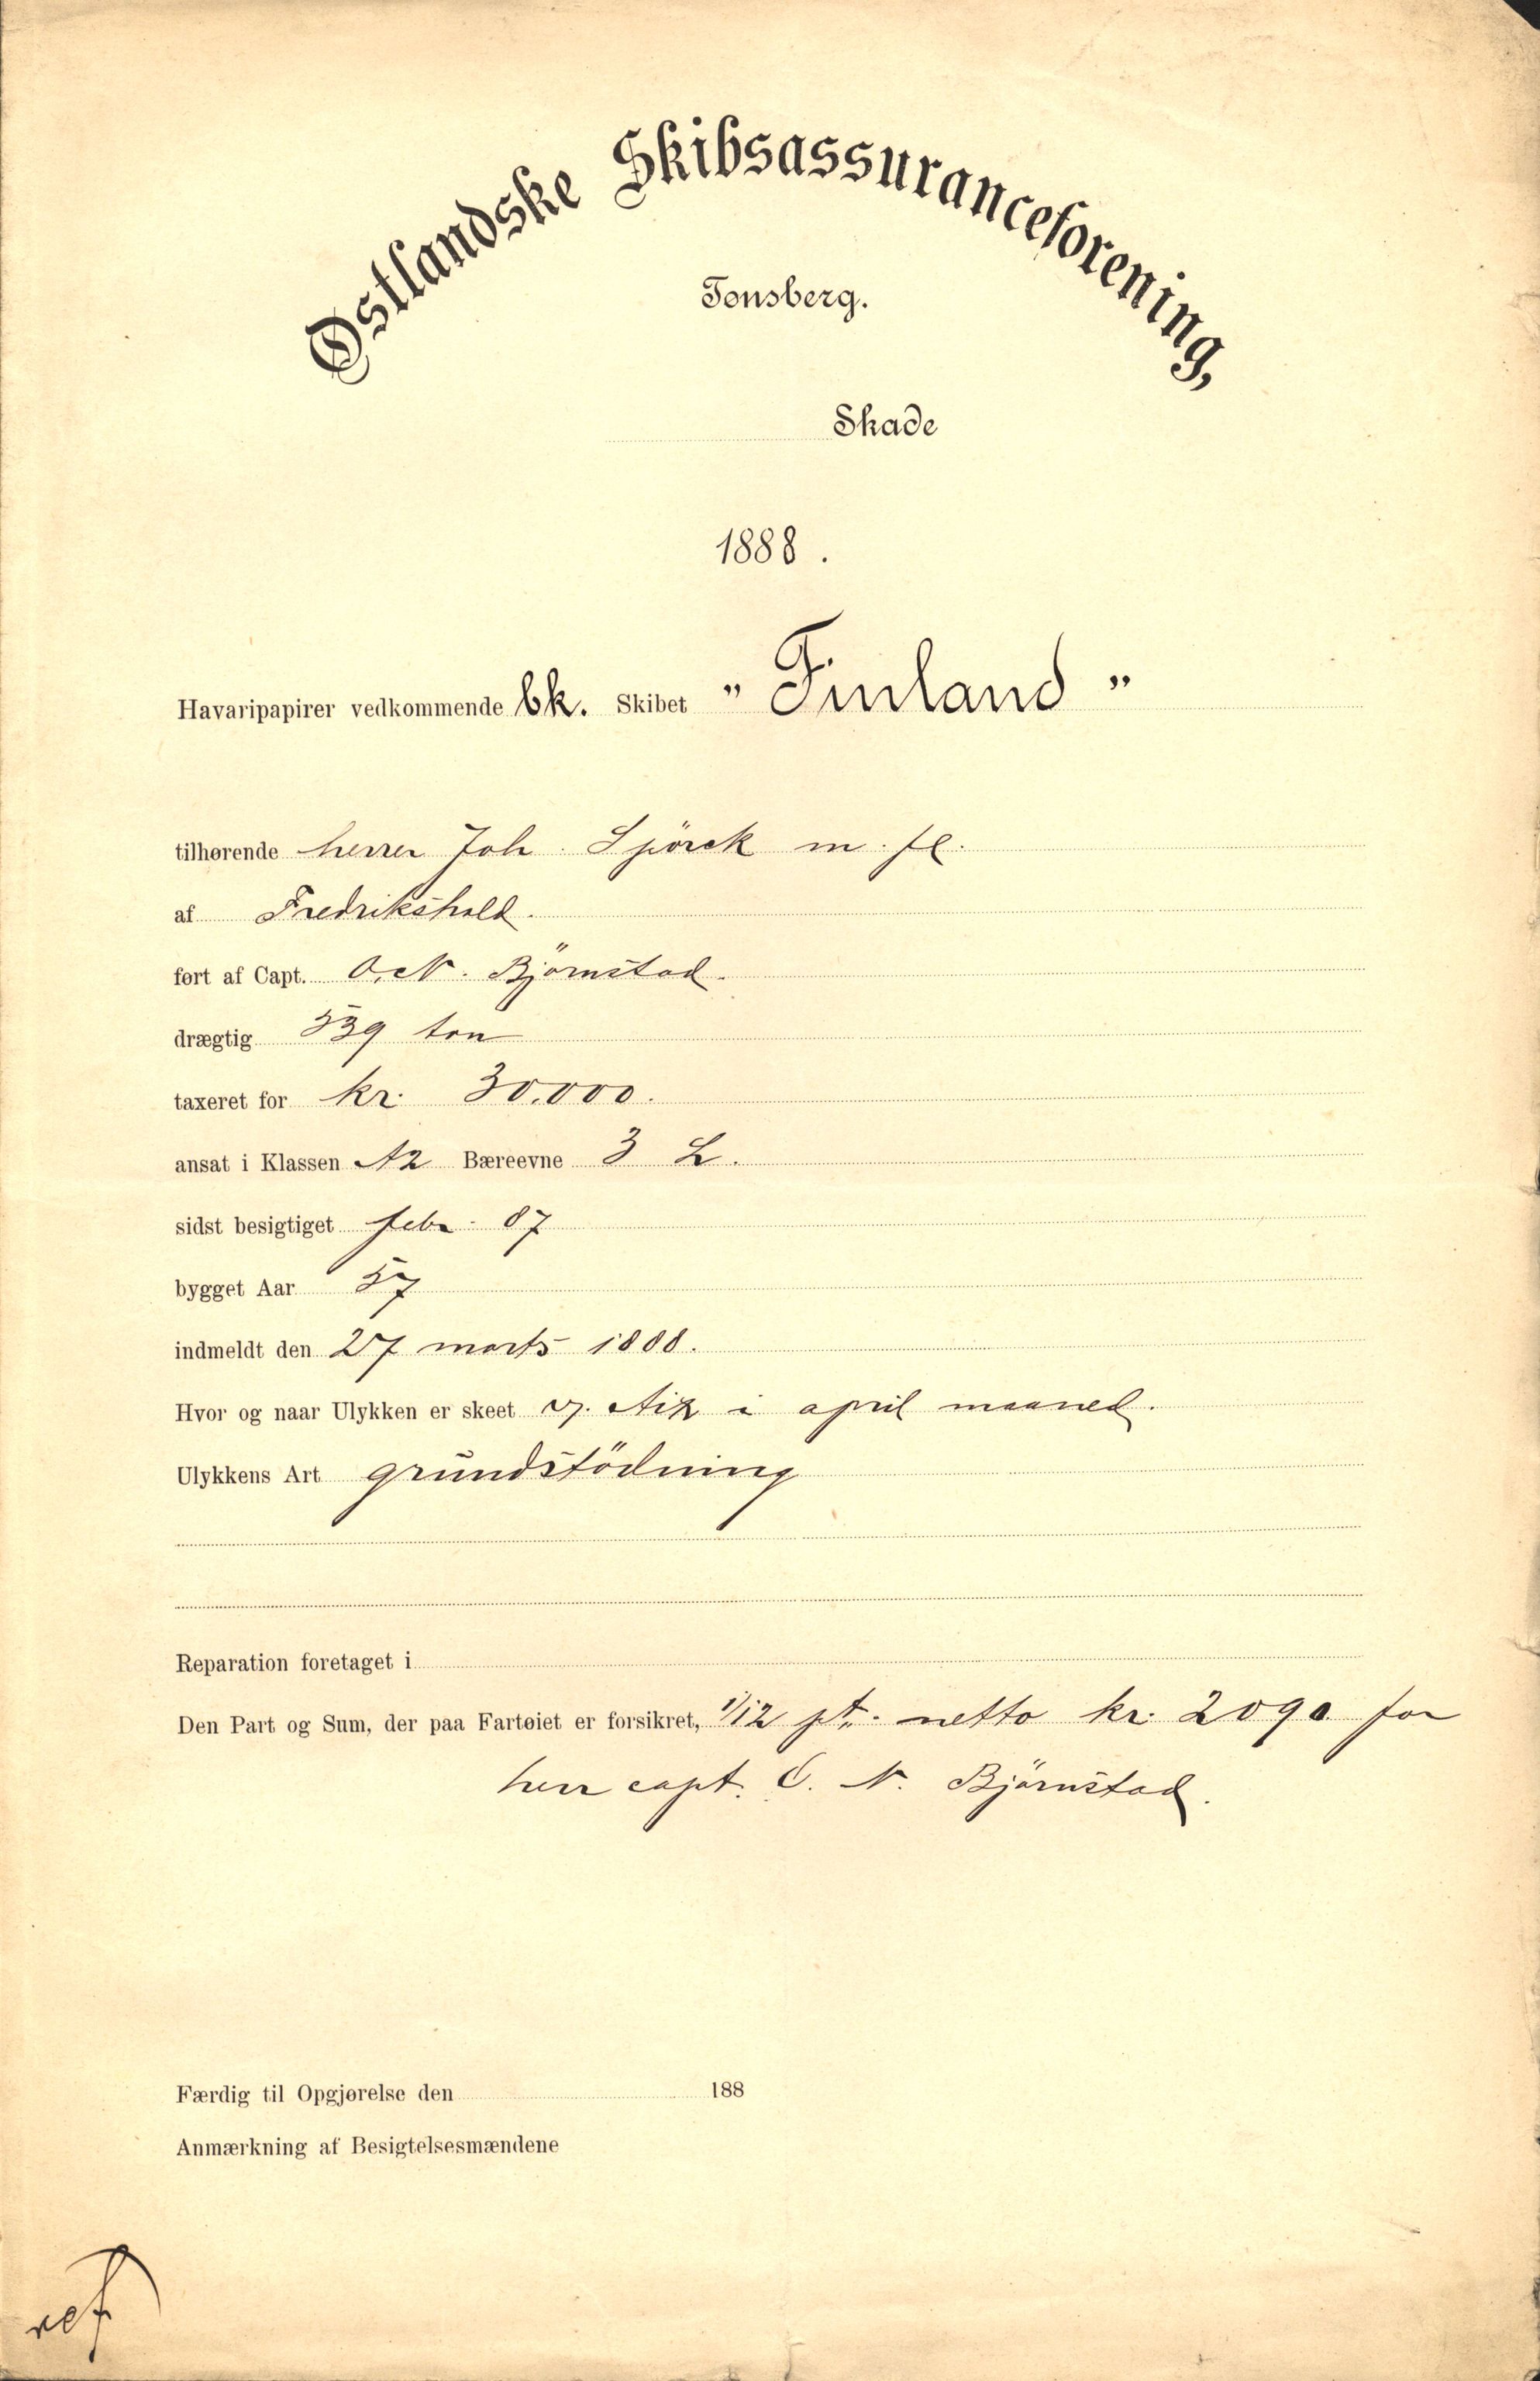 Østlandske Skibsassuranceforening,
Tønsberg.
Skade
1888.
Havaripapirer vedkommende bk. Skibet „Finland”
tilhørende herrer Joh. Spörck m. fl.
af Fredrikshald.
ført af Capt. O. N. Björnstad.
drægtig 539 ton
taxeret for kr. 30.000.
ansat i Klassen A2 Bæreevne 3 L.
sidst besigtiget febr. 87
bygget Aar 57
indmeldt den 27 marts 1888.
Hvor og naar Ulykken er skeet v. Aix i april maaned.
Ulykkens Art grundstödning
Reparation foretaget i
Den Part og Sum, der paa Fartøiet er forsikret, 1/12 pt. netto kr. 2090 for
herr capt. O. N. Björnstad.
Færdig til Opgjørelse den 188
Anmærkning af Besigtelsesmændene